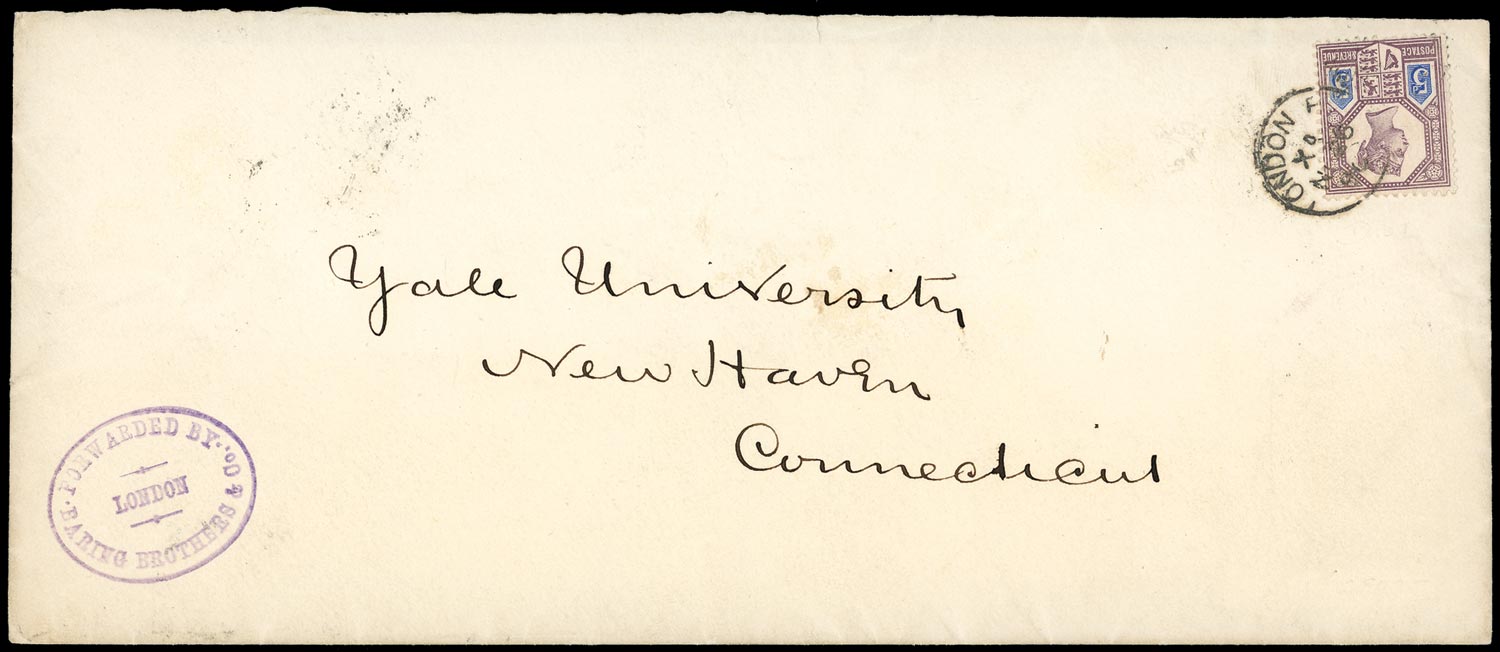 POSTAGE & REVENUE
5d 5d
LONDON F
X
Yale University,
New Haven
Connecticut
FORWARDED BY
LONDON
BARING BROTHERS & Co.